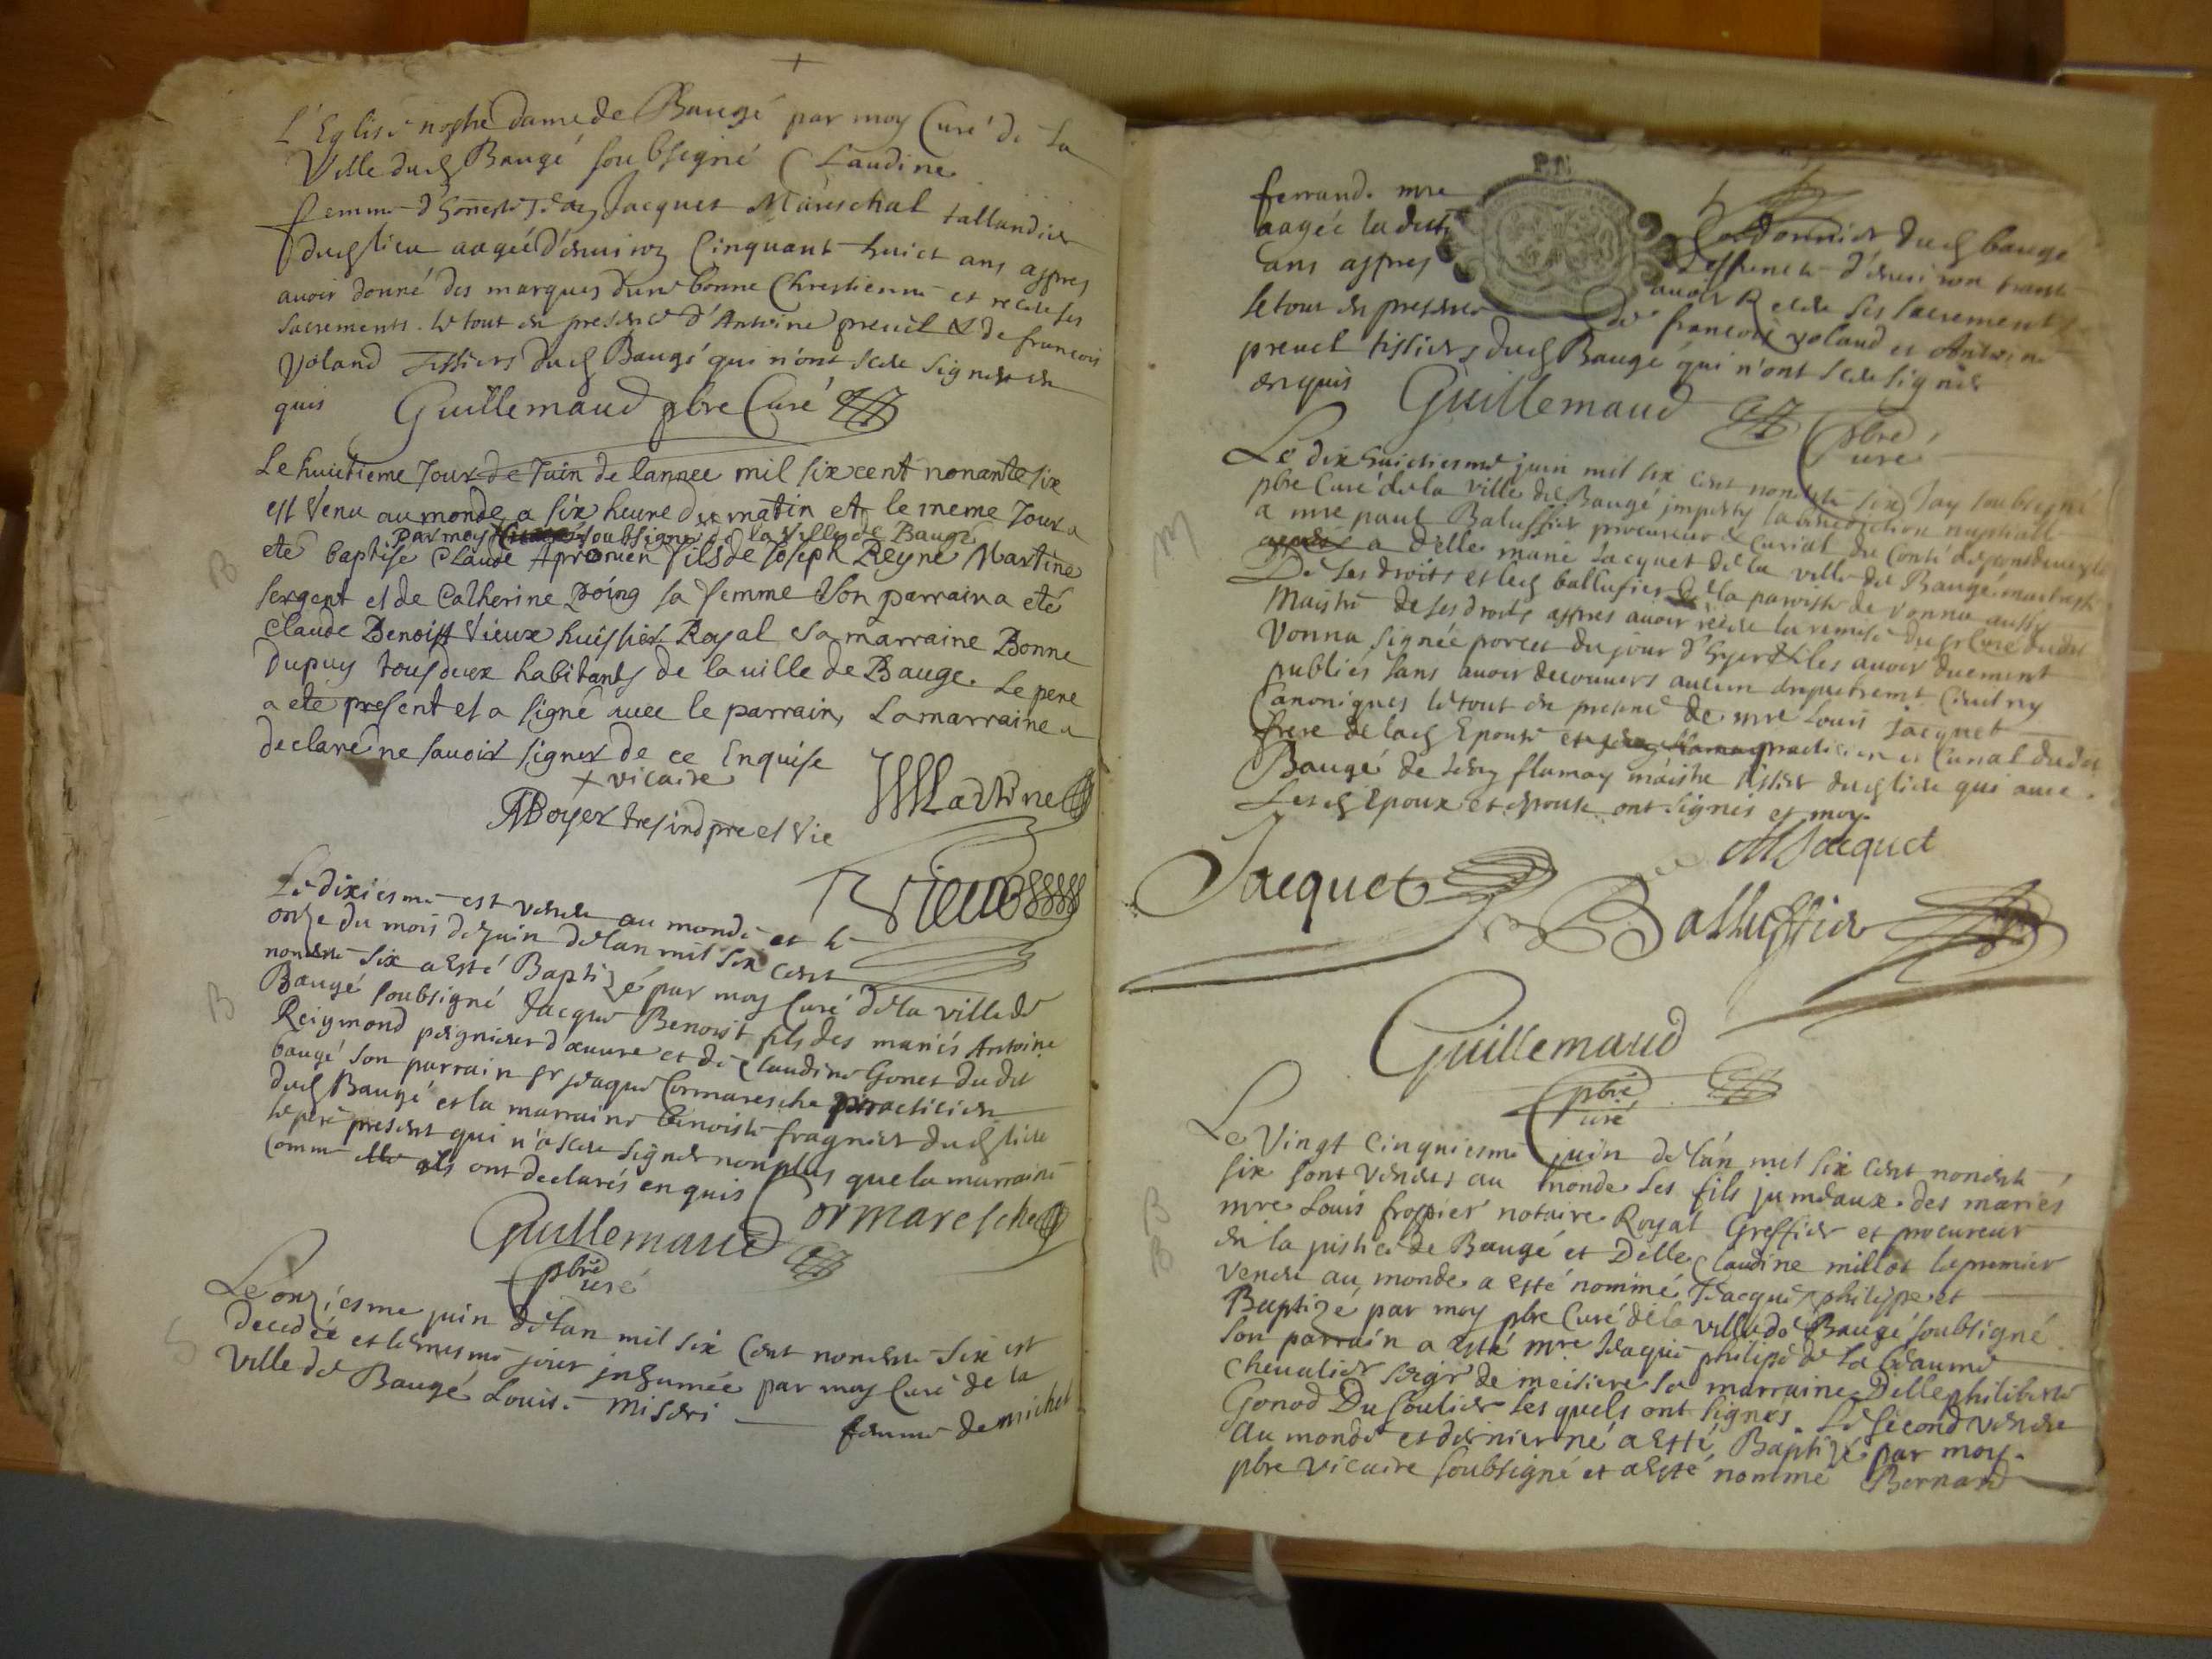 L'Eglise nostre dame de Baugé par moy Curé de la
Ville dud Baugé soubsigné Claudine
femme d'honneste Jacques Mareschal tallandier
dud lieu aagée d'enuiron Cinquant huict ans appres
auoir donné des marques d'une bonne Chrestienne et receu ses
sacrements. le tout en presence d'Antoine preuel & de francois
Voland Tissiers dud Baugé qui n'ont sceu signer en
quis Guillemaud pbre Curé
B
Le huictieme Jour de Juin de lannee mil six cent nonante six
est Venu au monde a six heure du matin et le meme Jour a
par moy soubsigné de la Ville de Baugé
eté baptise Claude Apronien fils de Joseph Reyne Martine
sergent et de Catherine Poing sa femme Son parrain a eté
Claude Benoist Vieux huissier Royal sa marraine Bonne
Dupuy tous deux habitants de la uille de Bauge. Le pere
a eté present et a signé auec le parrain, La marraine a
declaré ne sauoir signer de ce Enquise
+ vicaire
JMartine
Boyer pre et Vic
Vieux
B
Le dixiesme est venu au monde et le
onze du mois de Juin de lan mil six cent
nonente six a esté Baptizé par moy Curé de la ville de
Baugé soubsigné Jacque Benoist fils des mariés Antoine
Reigmond peignieur d'œuure et de Claudine Gonet du dit
baugé son parrain sr Jacque Cormaresche practicien
dud Baugé et la marraine Benoiste fragnier dud lieu
le pere present qui n'a sceu signer non plus que la marraine
comme ils ont declarés enquis
Cormaresche
Guillemaud
pbre
Curé
S
Le onziesme juin de lan mil six cent nonente six est
decedée et le mesme jour inhumée par moy Curé de la
Ville de Baugé Louise Miseri
femme de michel
P.N.
ferrand. mre Cordonnier dud baugé
aagée ladite deffuncte d'enuiron trante
ans appres auoir Receu ses sacrements
le tout en presence de francois voland et Antoine
preuel tissiers dud Baugé qui n'ont sceu signer
enquis Guillemaud
pbre
Curé
M
Le dix huictiesme juin mil six cent nonente six Jay soubsigné
pbre Curé de la ville de Baugé imparty la benediction nuptialle
a mre paul Balussier procureur & Curial du Conté
a Delle marie Jacquet de la ville de Baugé maitresse
De ses droits et led ballusier de la paroisse de Vonna aussy
Maistre de ses droits appres auoir receu la remise du sr Curé dudit
Vonna signée porcet du jour d'hyer & les auoir duement
publiés sans auoir decouuers aucun empechement Ciuil ny
Canoniques le tout en presence de mre Louis Jacquet
frere de lad Epouse practicien et Curial dudit
Baugé de flamay maistre tissier dud lieu qui auec
Lesd Epoux et epouse ont signés et moy.
MJacquet
Jacquet
Ballussier
Guillemaud
pbre
Curé
B
B
Le Vingt cinquiesme juin de lán mil six cent nonente
six sont venus au monde les fils jumeaux des mariés
mre Louis froppier notaire Royal Greffier et procureur
en la justice de Baugé et Delle Claudine millot le premier
venu au monde a esté nommé Jacque philippe et
Baptizé par moy pbre Curé de la ville de Baugé soubsigné
son parrain a esté mre Jacque philippe de la Beaume
cheualier seigr de meisiere sa marraine Delle philiberte
Gonod Du soulier lesquels ont signés. Le second venu
au monde et dernier né a esté Baptizé par moy
pbre vicaire soubsigné et a esté nommé Bernard